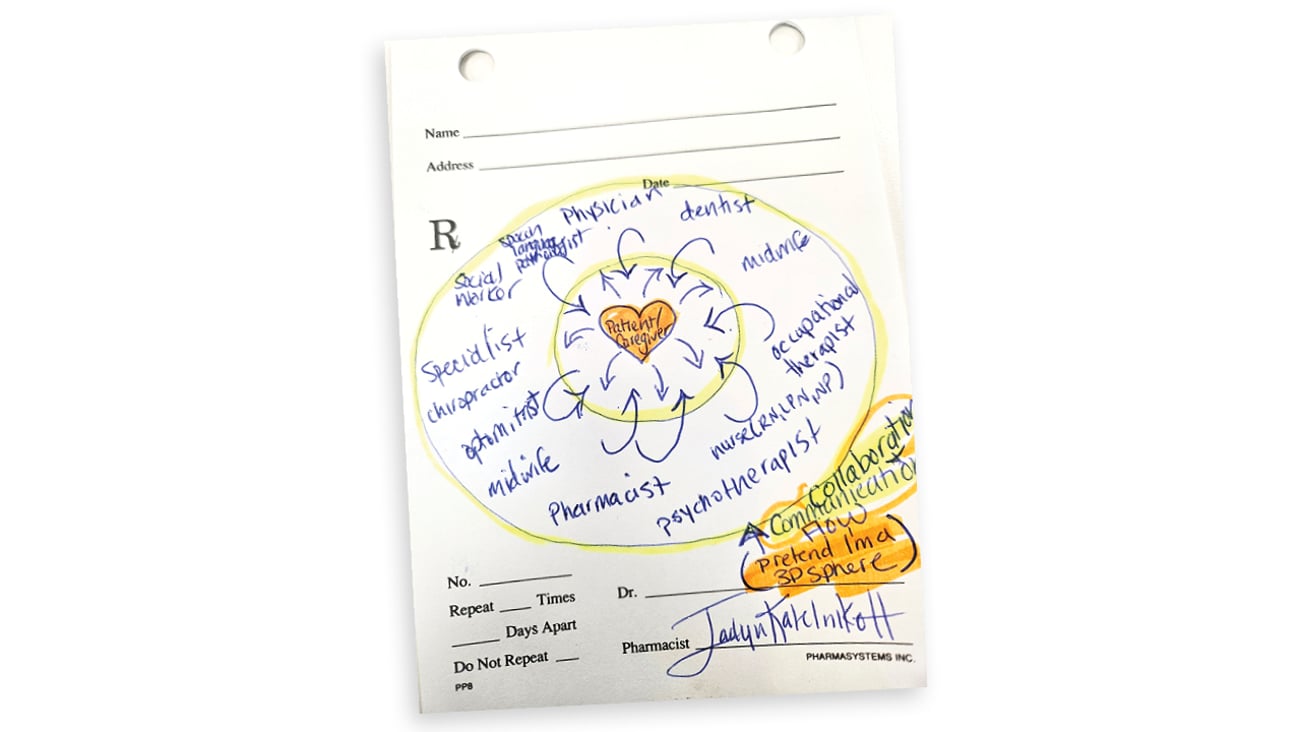 Name
Address
Date
Rx
Physician
dentist
midwife
occupational
therapist
nurse(RN, LPN, NP)
psychotherapist
Pharmacist
midwife
optomitrist
chiropractor
Specialist
Social
worker
language
pathologist
Patient/
Caregiver
Collaboration
Communication
Flow
(pretend I'm a
3D sphere)
No.
Repeat Times
Days Apart
Do Not Repeat
PP8
Dr.
Pharmacist Jadyn Katelnikoff
PHARMASYSTEMS INC.